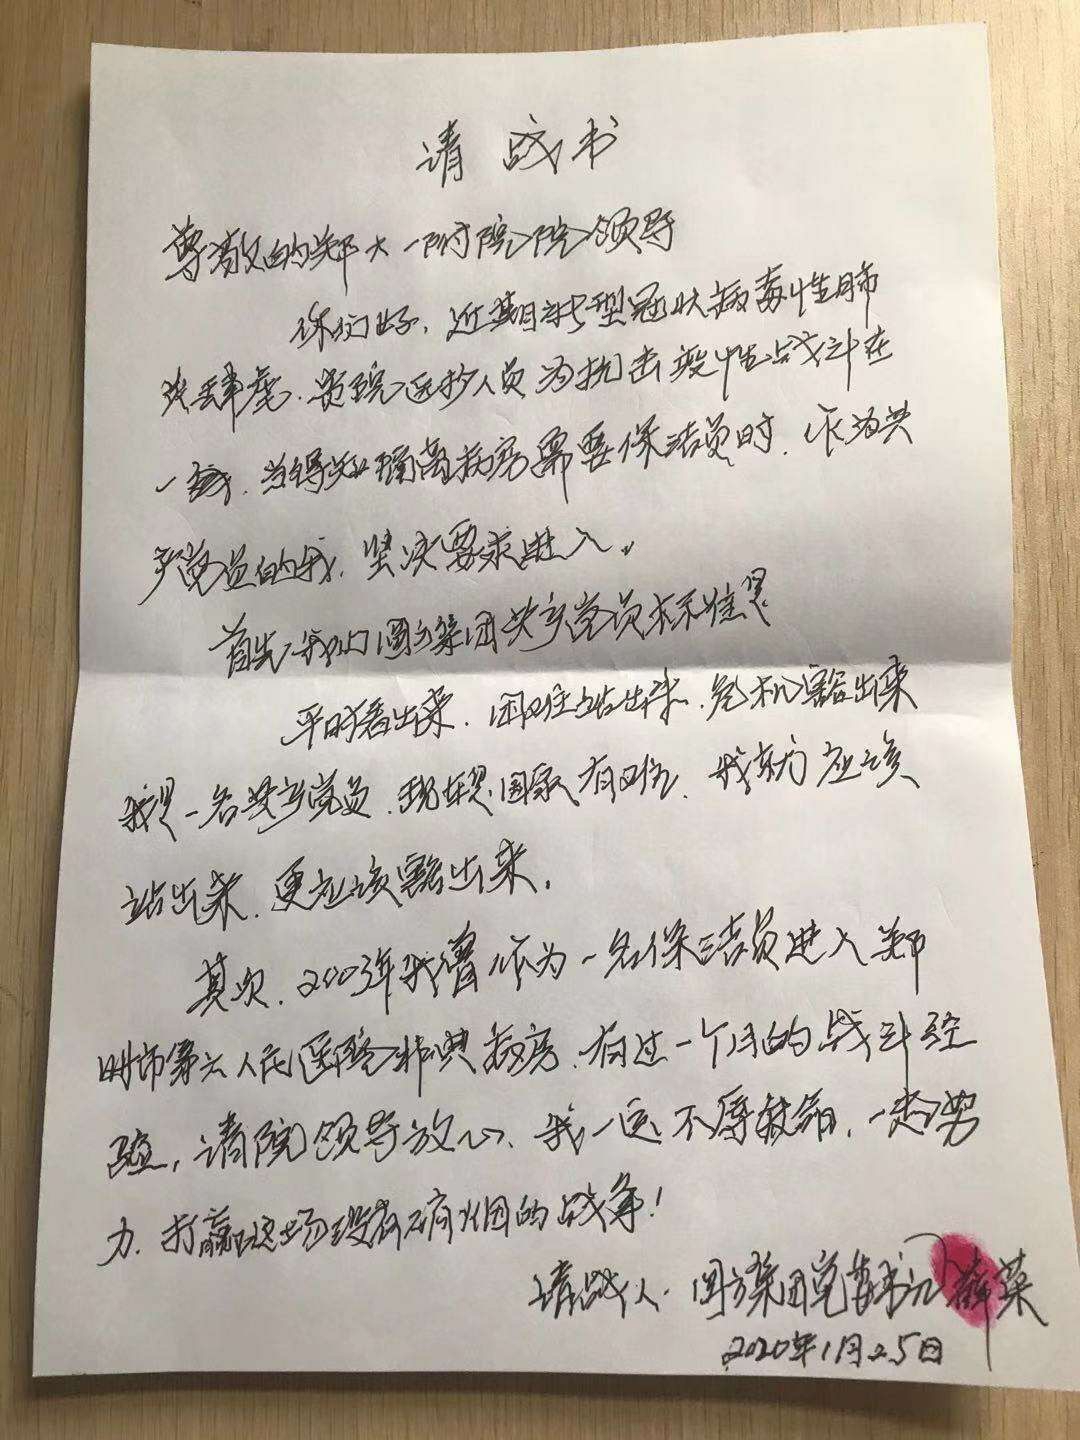 请战书
尊敬的郑大一附院院领导
你们好，近期新型冠状病毒性肺
炎肆虐，贵院医护人员为抗击疫情战斗在
一线，当得知隔离病房需要保洁员时，作为共
产党员的我，坚决要求进入。
首先，我们圆方集团共产党员标准是
平时看出来，困难站出来，危机豁出来
我是一名共产党员，现在是国家有难，我就应该
站出来，更应该豁出来，
其次，2003年我曾作为一名保洁员进入郑
州市第六人民医院非典病房，有过一个月的战斗经
验，请院领导放心，我一定不辱使命，一起努
力，打赢这场没有硝烟的战争！
请战人：圆方集团党委书记 薛荣
2020年1月25日